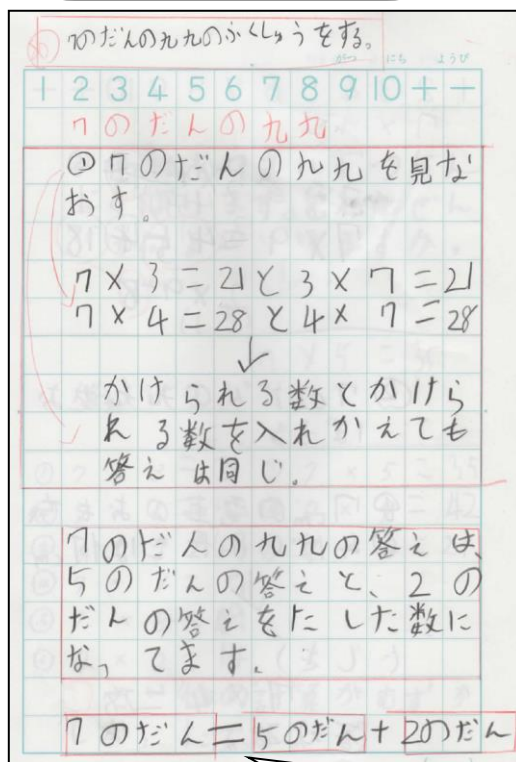 め 7のだんの九九のふくしゅうをする。
がつ にち ようび
1 2 3 4 5 6 7 8 9 10 + -
7のだんの九九
① 7のだんの九九を見な
おす。
7×3=21と3×7=21
7×4=28と4×7=28
↓
かけられる数とかけら
れる数を入れかえても
答えは同じ。
7のだんの九九の答えは、
5のだんの答えと、2の
だんの答えをたした数に
なってます。
7のだん=5のだん+2のだん